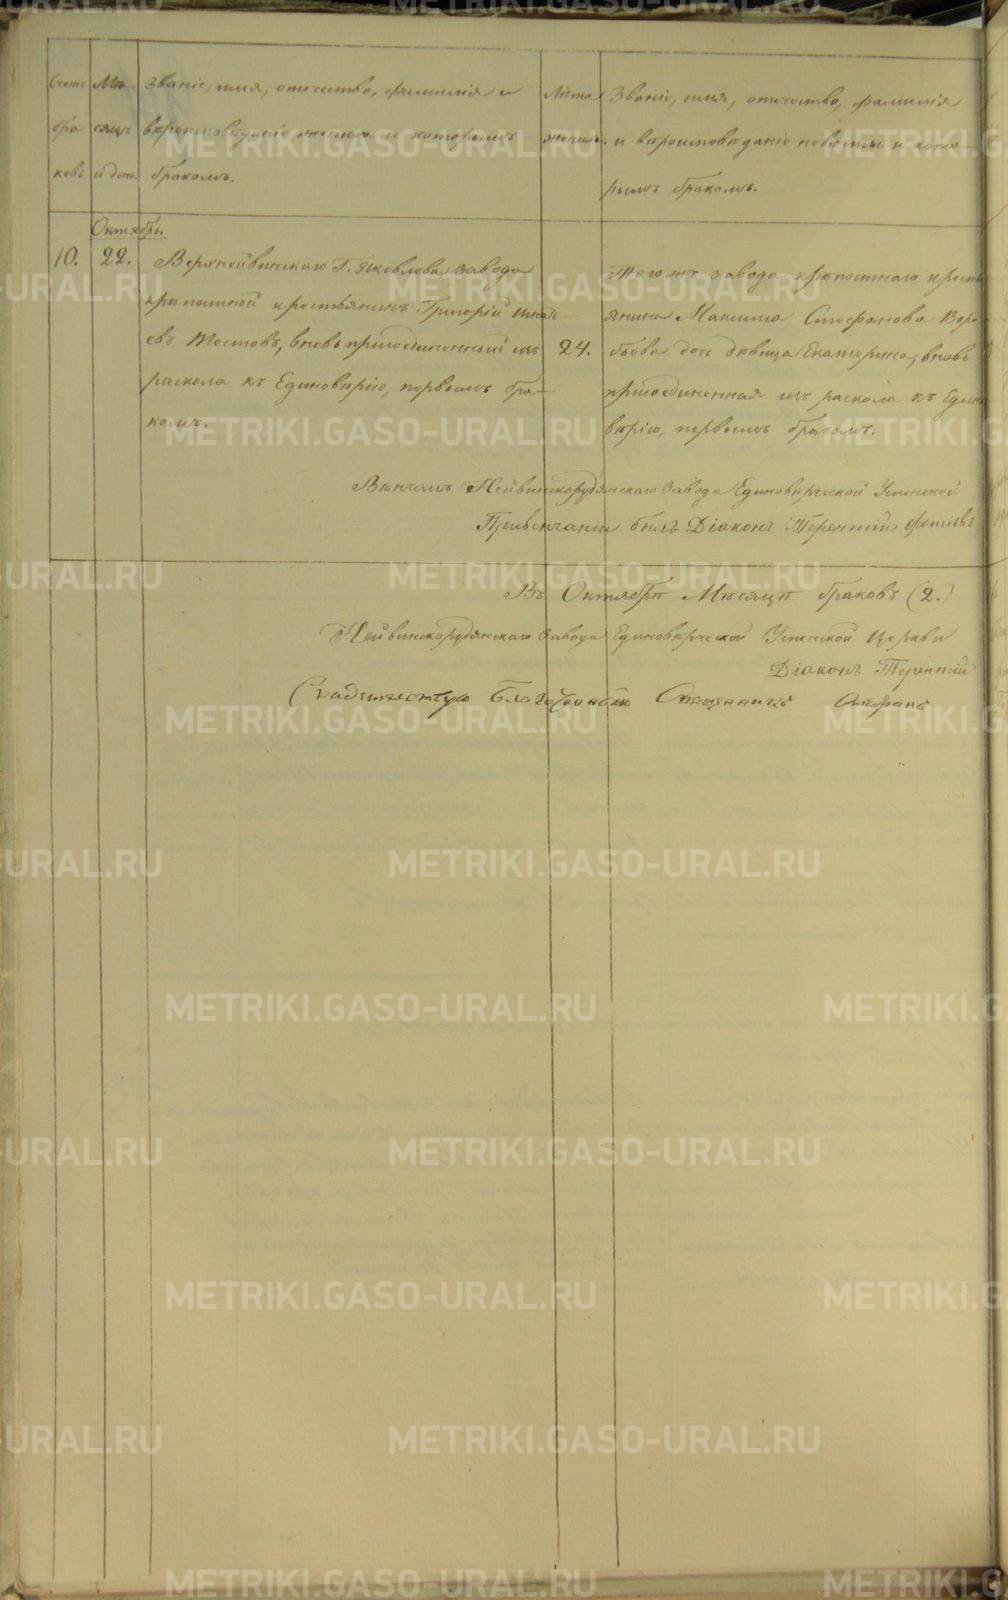 Счетъ браковъ
Мѣсяцъ и день.
Званіе, имя, отчество, фамилія и
вѣроисповѣданіе жениха и которымъ
бракомъ.
Лѣта жениха.
Званіе, имя, отчество, фамилія
и вѣроисповѣданіе невѣсты и кото-
рымъ бракомъ.
Октябрь.
10. 22.
Верхнейвинскаго Г. Яковлева завода
крѣпостной крестьянинъ Григорій
евъ Тестовъ, вновь присоединенный изъ
раскола къ Единовѣрію, первымъ бра-
комъ.
24.
Того жъ завода крѣпостнаго кресть-
янина Максима Стефанова Воро-
бьева дочь дѣвица Екатерина, вновь
присоединенная изъ раскола къ Едино-
вѣрію, первымъ бракомъ.
Вѣнчалъ Нейвинскорудянскаго завода Единовѣрческой Успенской
При вѣнчаніи былъ Діаконъ Терентій
Въ Октябрѣ Мѣсяцѣ браковъ (2.)
Нейвинскорудянскаго завода Единовѣрческой Успенской Церкви
Діаконъ Терентій
Свидѣтельствую Благочинный Священникъ Стефанъ
METRIKI.GASO-URAL.RU